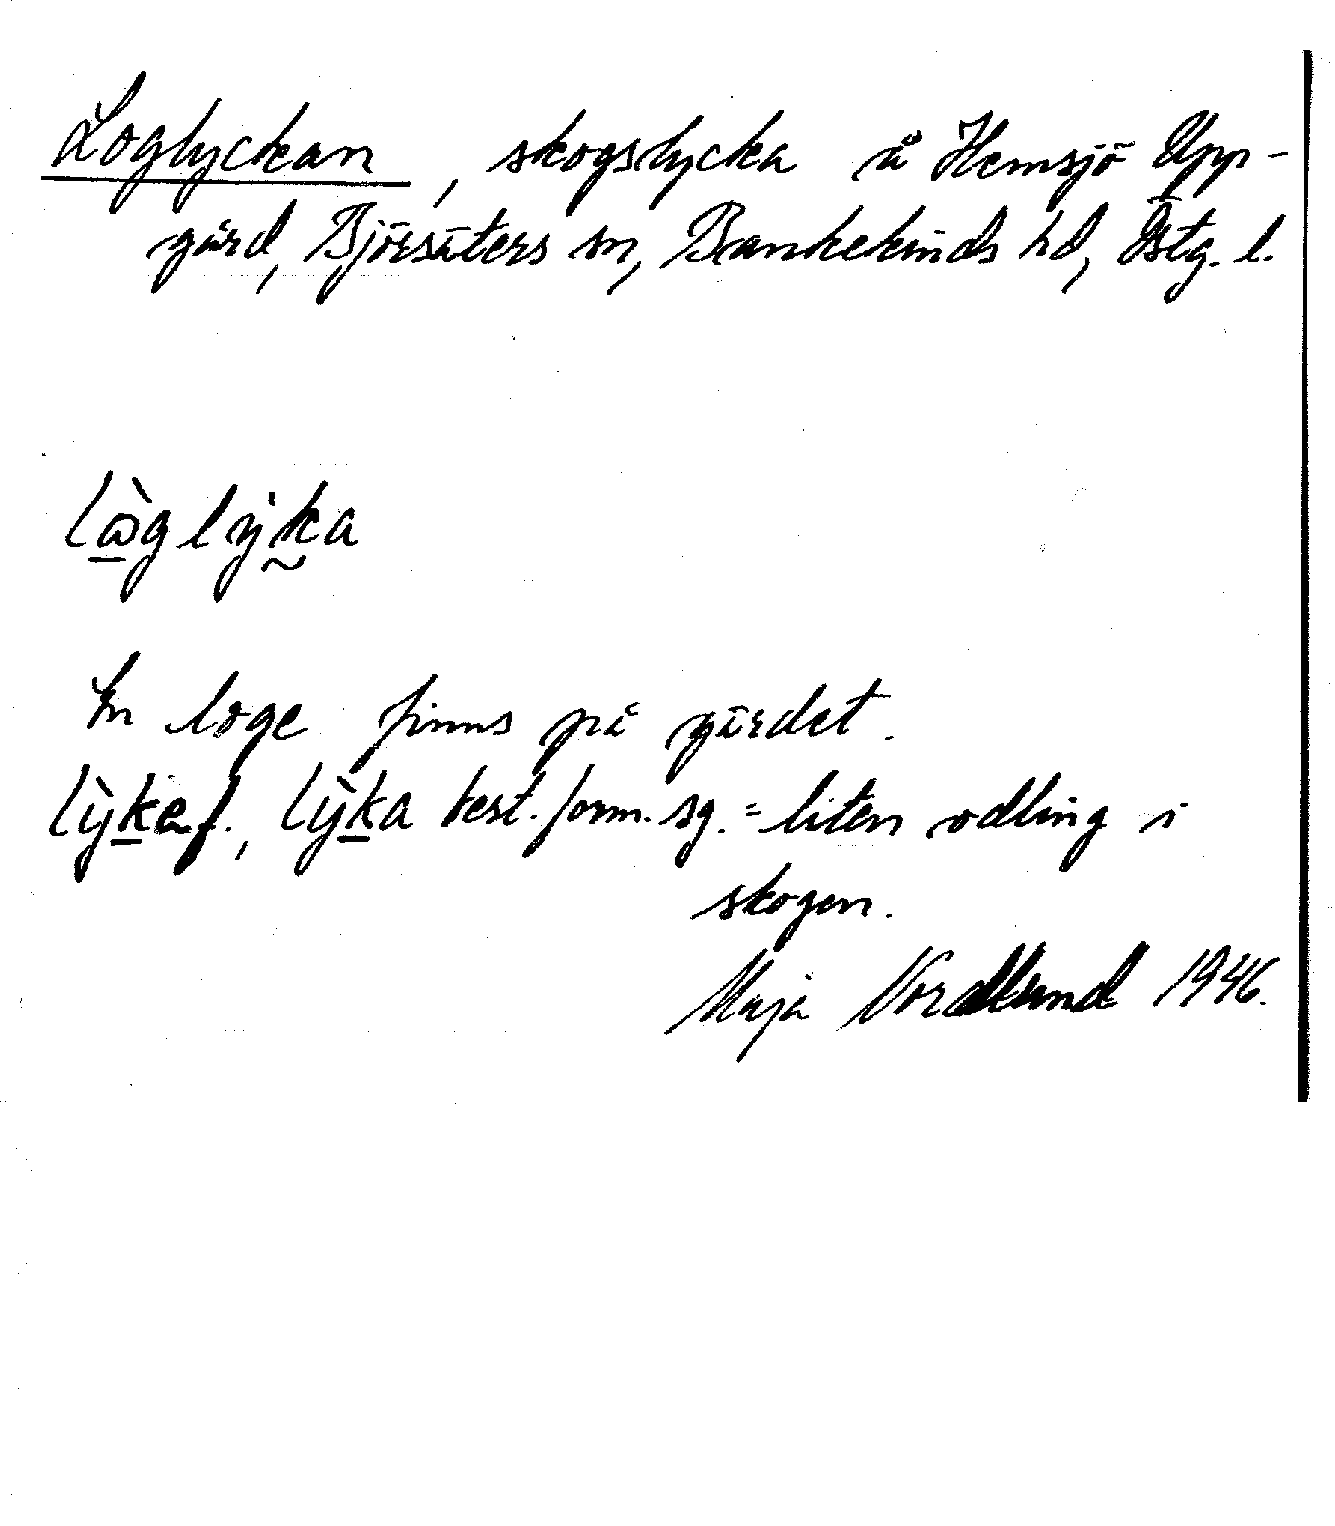 Loglyckan, skogslycka å Hemsjö Upp-
gård, Björsäters sn, Bankekinds hd, Östg. l.
lòglỳka
En loge finns på gärdet.
lỳka f., lỳka best. form. sg. = liten odling i
skogen.
Maja Nordlund 1946.